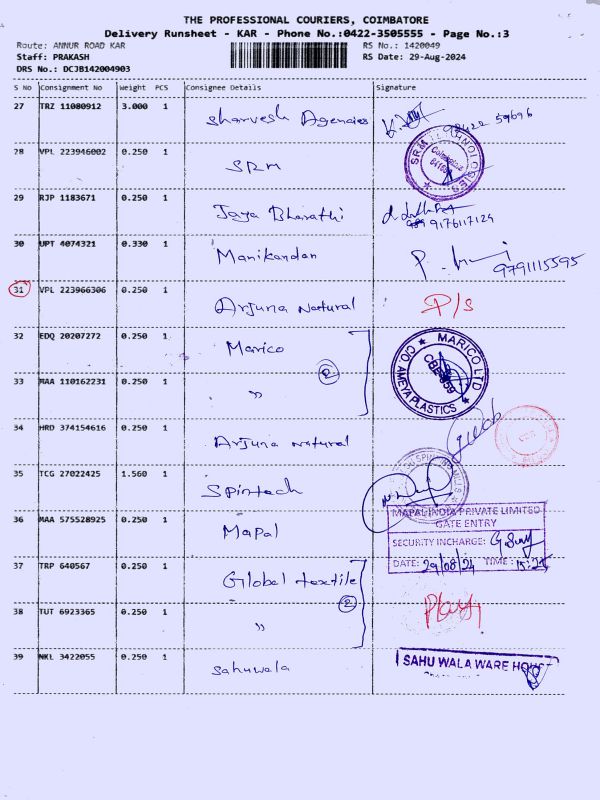 THE PROFESSIONAL COURIERS, COIMBATORE
Delivery Runsheet - KAR - Phone No.:0422-3505555 - Page No.:3
Route: ANNUR ROAD KAR RS No.: 1420049
Staff: PRAKASH RS Date: 29-Aug-2024
DRS No.: DCJB142004903
S No Consignment No Weight PCS Consignee Details Signature
27 TRZ 11080912 3.000 1 Sharvesh Agencies
28 VPL 223946002 0.250 1 SRM
SRM TECHNOLOGIES
Coimbatore
29 RJP 1183671 0.250 1 Jaya Bharathi 9176117129
30 UPT 4074321 0.330 1 Manikandan 9791115595
31 VPL 223966306 0.250 1 Arjuna Natural P/s
32 EDQ 20207272 0.250 1 Marico
MARICO LTD
C/O. AMEYA PLASTICS
33 MAA 110162231 0.250 1 " 2
34 HRD 374154616 0.250 1 Arjuna Natural
35 TCG 27022425 1.560 1 Spintech
36 MAA 575528925 0.250 1 Mapal
MAPAL INDIA PRIVATE LIMITED
GATE ENTRY
SECURITY INCHARGE:
DATE: 29/08/24 TIME:
37 TRP 640567 0.250 1 Global textile
38 TUT 6923365 0.250 1 " 2
39 NKL 3422055 0.250 1 Sahuwala
SAHU WALA WARE HOUSE